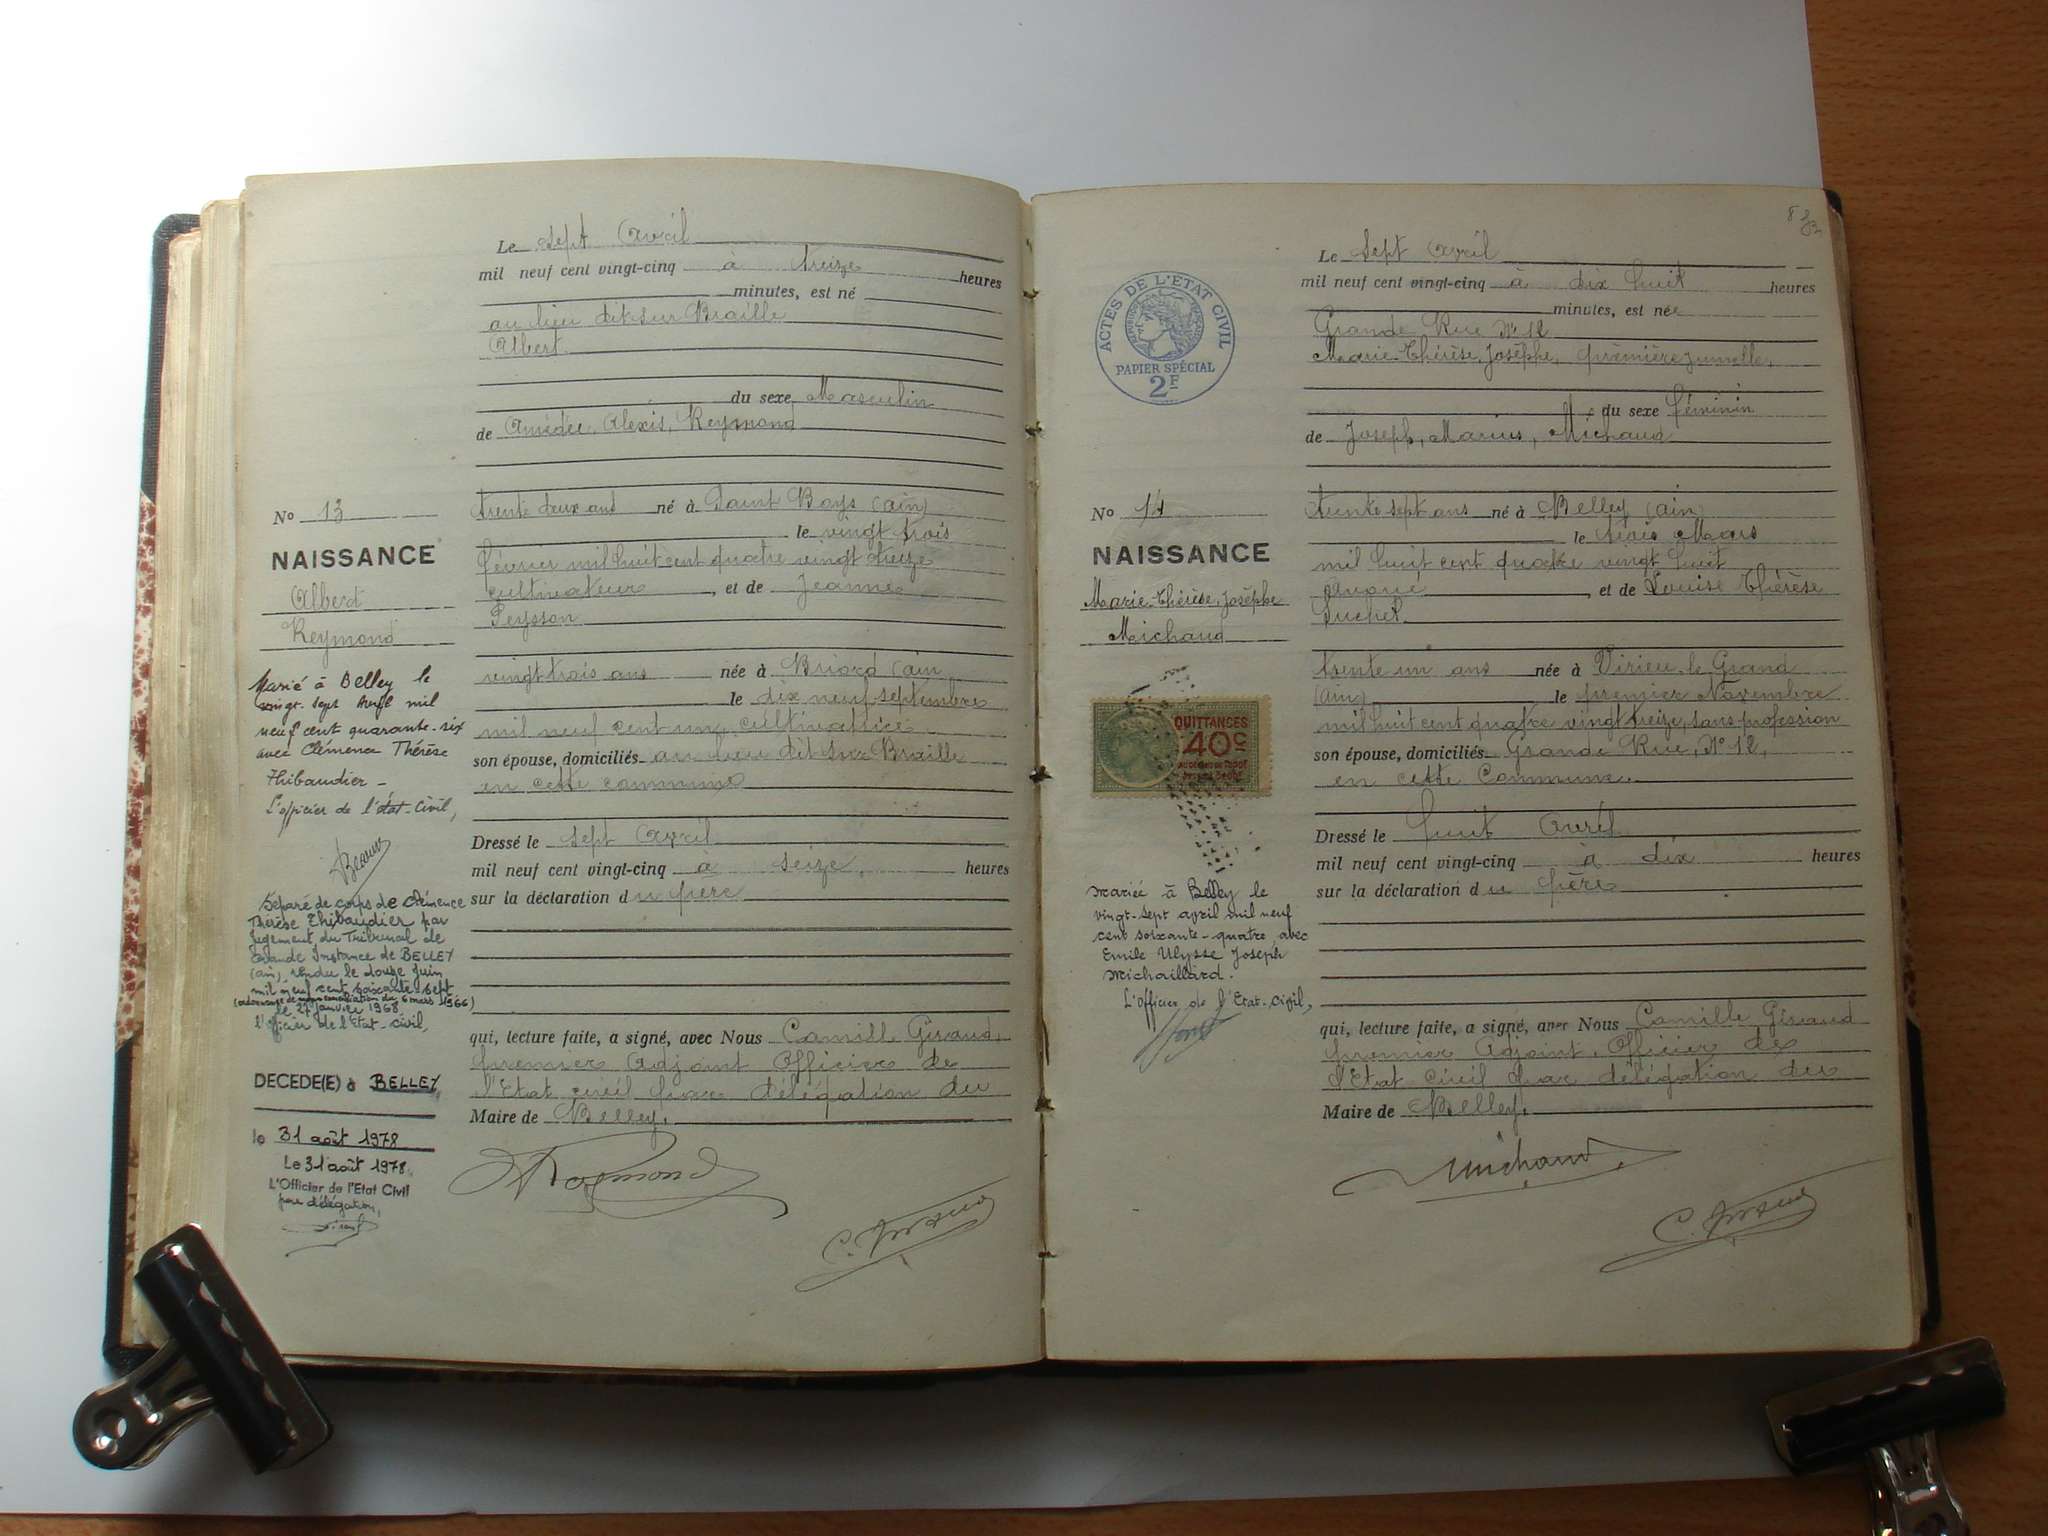 Le sept Avril
mil neuf cent vingt-cinq à treize heures
minutes, est né
au lieu dit sur Braille
Albert
du sexe Masculin
de Amédée, Alexis, Reymond
trente deux ans né à Saint Boys (ain)
le vingt trois
février mil huit cent quatre vingt treize
cultivateur, et de Jeanne
Peysson
vingt trois ans née à Briord (ain
le dix neuf septembre
mil neuf cent un, cultivatrice
son épouse, domiciliés au lieu dit sur Braille
en cette commune
Dressé le sept Avril
mil neuf cent vingt-cinq à seize, heures
sur la déclaration du père
qui, lecture faite, a signé, avec Nous Camille Giraud,
premier Adjoint Officier de
l'Etat civil par délégation du
Maire de Belley.
Reymond
C. Giraud
No 13
NAISSANCE
Albert
Reymond
Marié à Belley le
vingt-sept Avril mil
neuf cent quarante-six
avec Clémence Thérèse
Thibaudier -
L'officier de l'état-Civil,
Séparé de corps de Clémence
Thérèse Thibaudier par
Jugement du Tribunal de
Grande Instance de BELLEY
(ain), rendu le douze Juin
mil neuf cent soixante-sept
(ordonnance de non conciliation du 6 mars 1966)
le 27 janvier 1968.
l'officier de l'Etat-civil,
DECEDE(E) à BELLEY,
le 31 août 1978
Le 31 août 1978.
L'Officier de l'Etat Civil
par délégation,
8
Le sept Avril
mil neuf cent vingt-cinq à dix huit heures
minutes, est née
Grande Rue No 12
Marie-Thérèse, Josèphe, première jumelle,
du sexe féminin
de Joseph, Marius, Michaud
trente sept ans né à Belley (ain)
le trois Mars
mil huit cent quatre vingt huit
avoué, et de Louise Thérèse
Suchet
trente un ans née à Virieu le Grand
(ain) le premier Novembre
mil huit cent quatre vingt treize, sans profession
son épouse, domiciliés Grande Rue, No 12,
en cette Commune.
Dressé le huit Avril
mil neuf cent vingt-cinq à dix heures
sur la déclaration du père
qui, lecture faite, a signé, avec Nous Camille Giraud
premier Adjoint, Officier de
l'Etat civil par délégation du
Maire de Belley.
Michaud
C. Giraud
ACTES DE L'ETAT CIVIL
PAPIER SPÉCIAL
2F
No 14
NAISSANCE
Marie-Thérèse, Josèphe
Michaud
QUITTANCES
40c
Mariée à Belley le
vingt-sept avril mil neuf
cent soixante-quatre avec
Emile Ulysse Joseph
Michaillard.
L'Officier de l'Etat-civil,